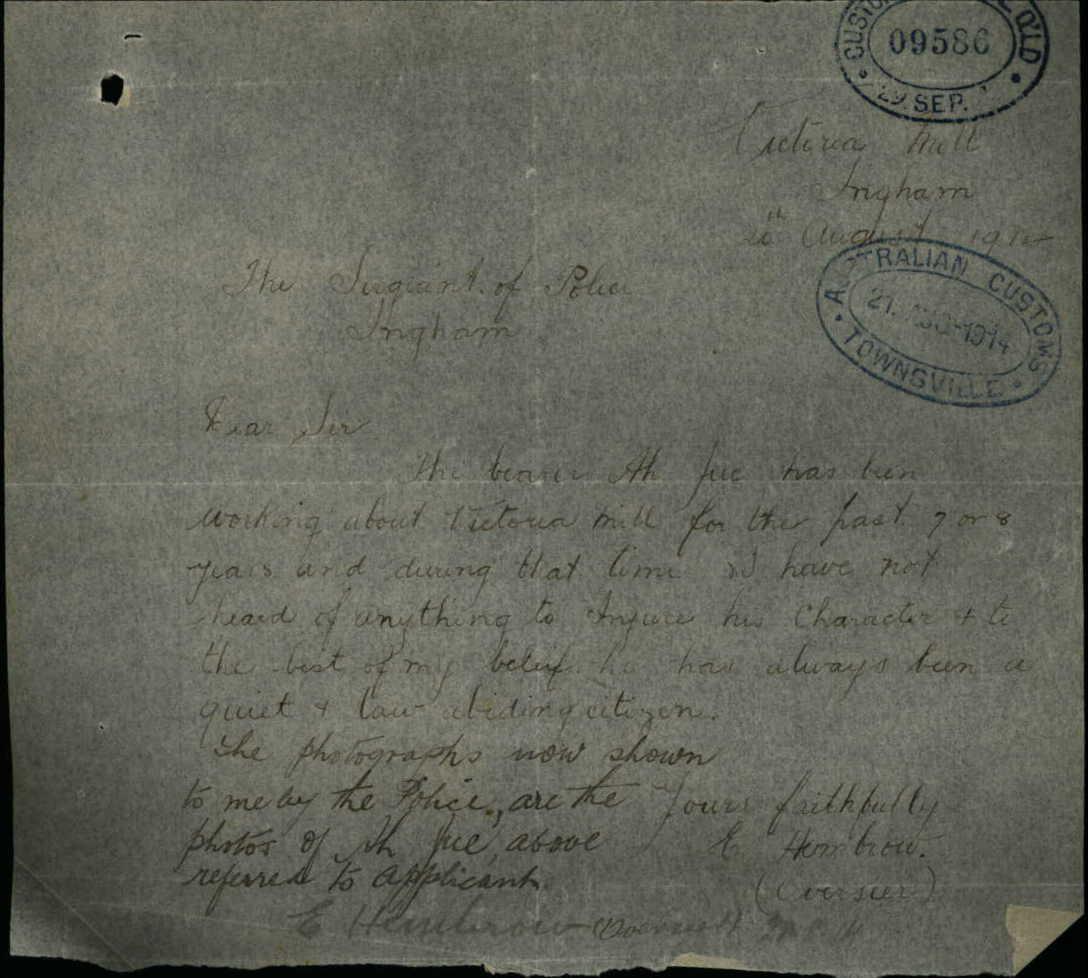 CUSTOMS Q'LD
09586
29 SEP.
Victoria Mill
Ingham
August 191
AUSTRALIAN CUSTOMS
21. AUG 1914
TOWNSVILLE
The Sergiant of Police
Ingham
Dear Sir
The bearer Ah Jue has been
working about Victoria Mill for the past 7 or 8
years and during that time I have not
heard of anything to Injure his Character & to
the best of my belief he has always been a
quiet & law abiding citizen.
The photographs now shown
to me by the Police, are the
photos of Ah Jue, above
referred to applicant.
Yours faithfully
E Hembrow.
(Overseer)
E Hembrow